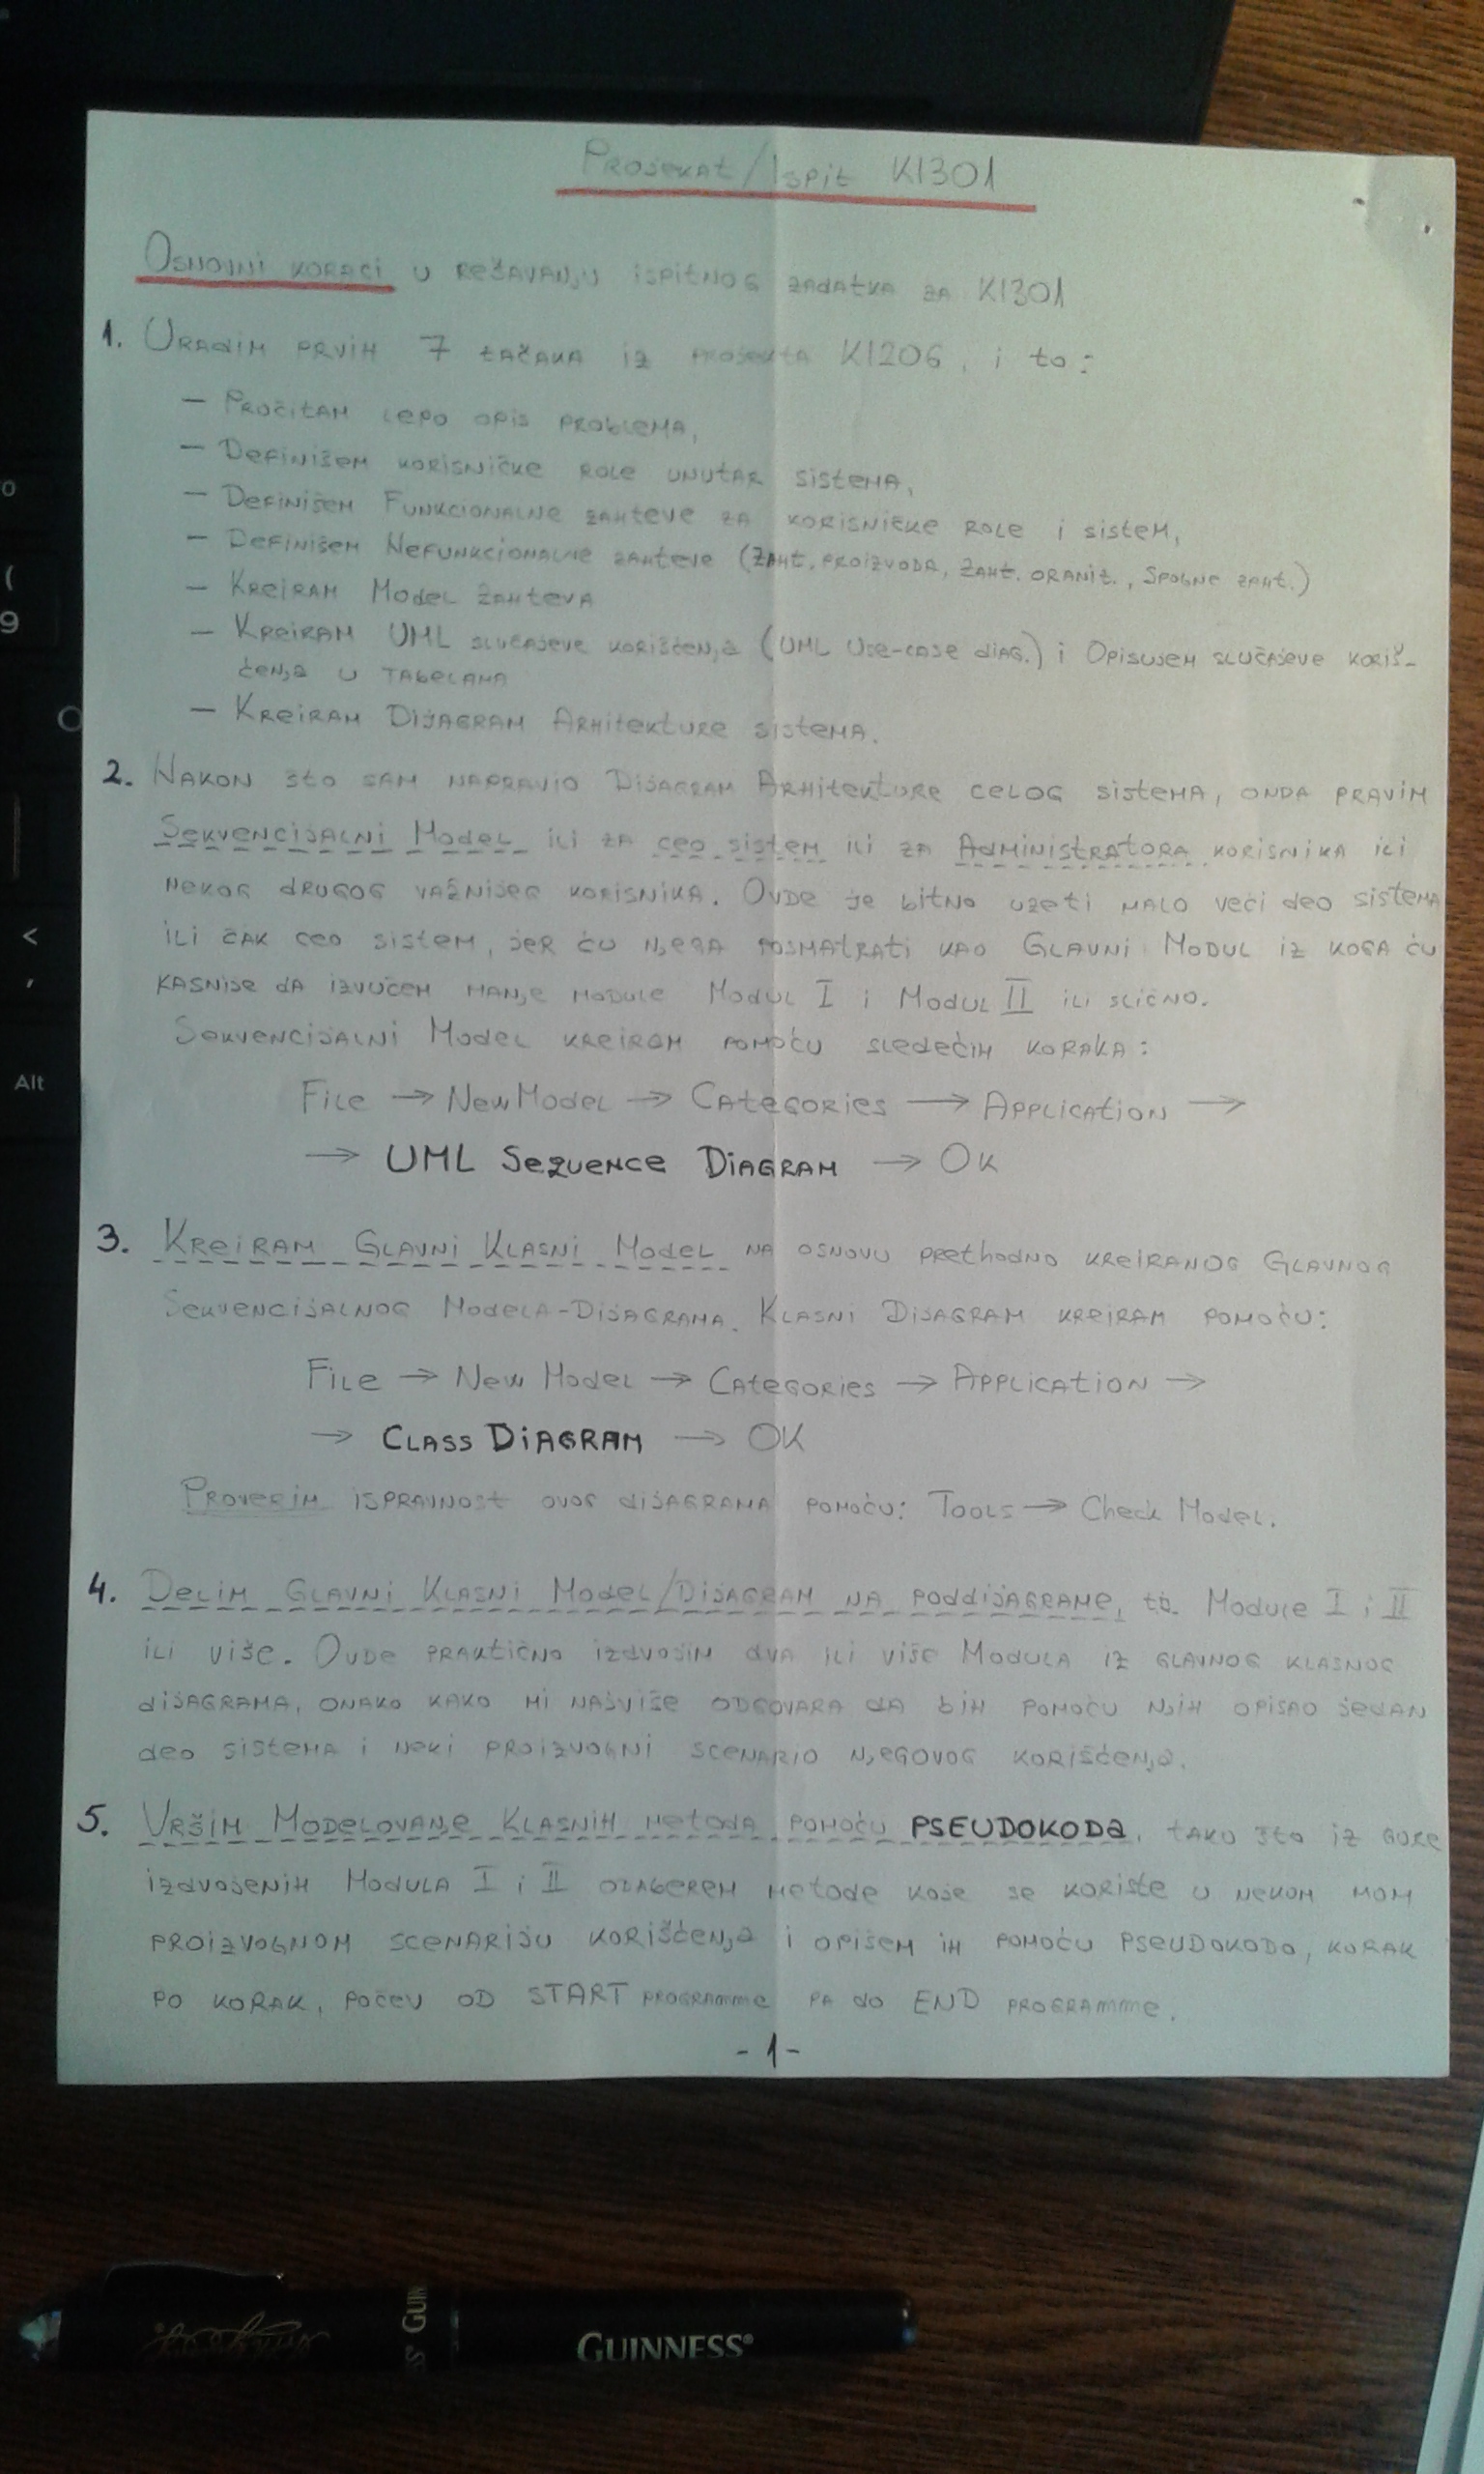 Projekat/Ispit KI301
Osnovni koraci u rešavanju ispitnog zadatka za KI301
1. Uradim prvih 7 tačaka iz projekta KI206, i to:
– Pročitam lepo opis problema,
– Definišem korisničke role unutar sistema,
– Definišem Funkcionalne zahteve za korisničke role i sistem,
– Definišem Nefunkcionalne zahteve (Zaht. proizvoda, Zaht. oraniz., Spoljne zaht.)
– Kreiram Model Zahteva
– Kreiram UML slučajeve korišćenja (UML Use-case diag.) i Opisujem slučajeve koriš-
ćenja u tabelama
– Kreiram Dijagram Arhitekture sistema.
2. Nakon što sam napravio Dijagram Arhitekture celog sistema, onda pravim
Sekvencijalni Model ili za ceo sistem ili za Administratora korisnika ili
nekog drugog važnijeg korisnika. Ovde je bitno uzeti malo veći deo sistema
ili čak ceo sistem, jer ću njega posmatrati kao Glavni Modul iz koga ću
kasnije da izvučem manje module Modul I i Modul II ili slično.
Sekvencijalni Model kreiram pomoću sledećih koraka:
File → New Model → Categories → Application →
→ UML Sequence Diagram → Ok
3. Kreiram Glavni Klasni Model na osnovu prethodno kreiranog Glavnog
Sekvencijalnog Modela-Dijagrama. Klasni Dijagram kreiram pomoću:
File → New Model → Categories → Application →
→ Class Diagram → OK
Proverim ispravnost ovog dijagrama pomoću: Tools → Check Model.
4. Delim Glavni Klasni Model/Dijagram na poddijagrame, tj. Module I i II
ili više. Ovde praktično izdvojim dva ili više Modula iz glavnog klasnog
dijagrama, onako kako mi najviše odgovara da bih pomoću njih opisao jedan
deo sistema i neki proizvoljni scenario njegovog korišćenja.
5. Vršim Modelovanje Klasnih metoda pomoću PSEUDOKODA, tako što iz gore
izdvojenih Modula I i II odaberem metode koje se koriste u nekom mom
proizvoljnom scenariju korišćenja i opišem ih pomoću pseudokoda, korak
po korak, počev od START programme pa do END programme.
-1-
GUINNESS®
GUIN
Alt
<
,
(
9
O